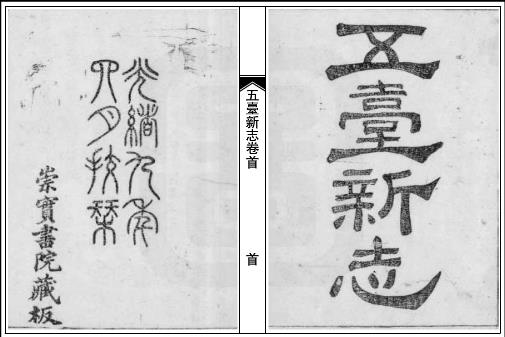 五臺新志
五臺新志卷首
首
光緒九年
四月校栞
崇實書院藏板